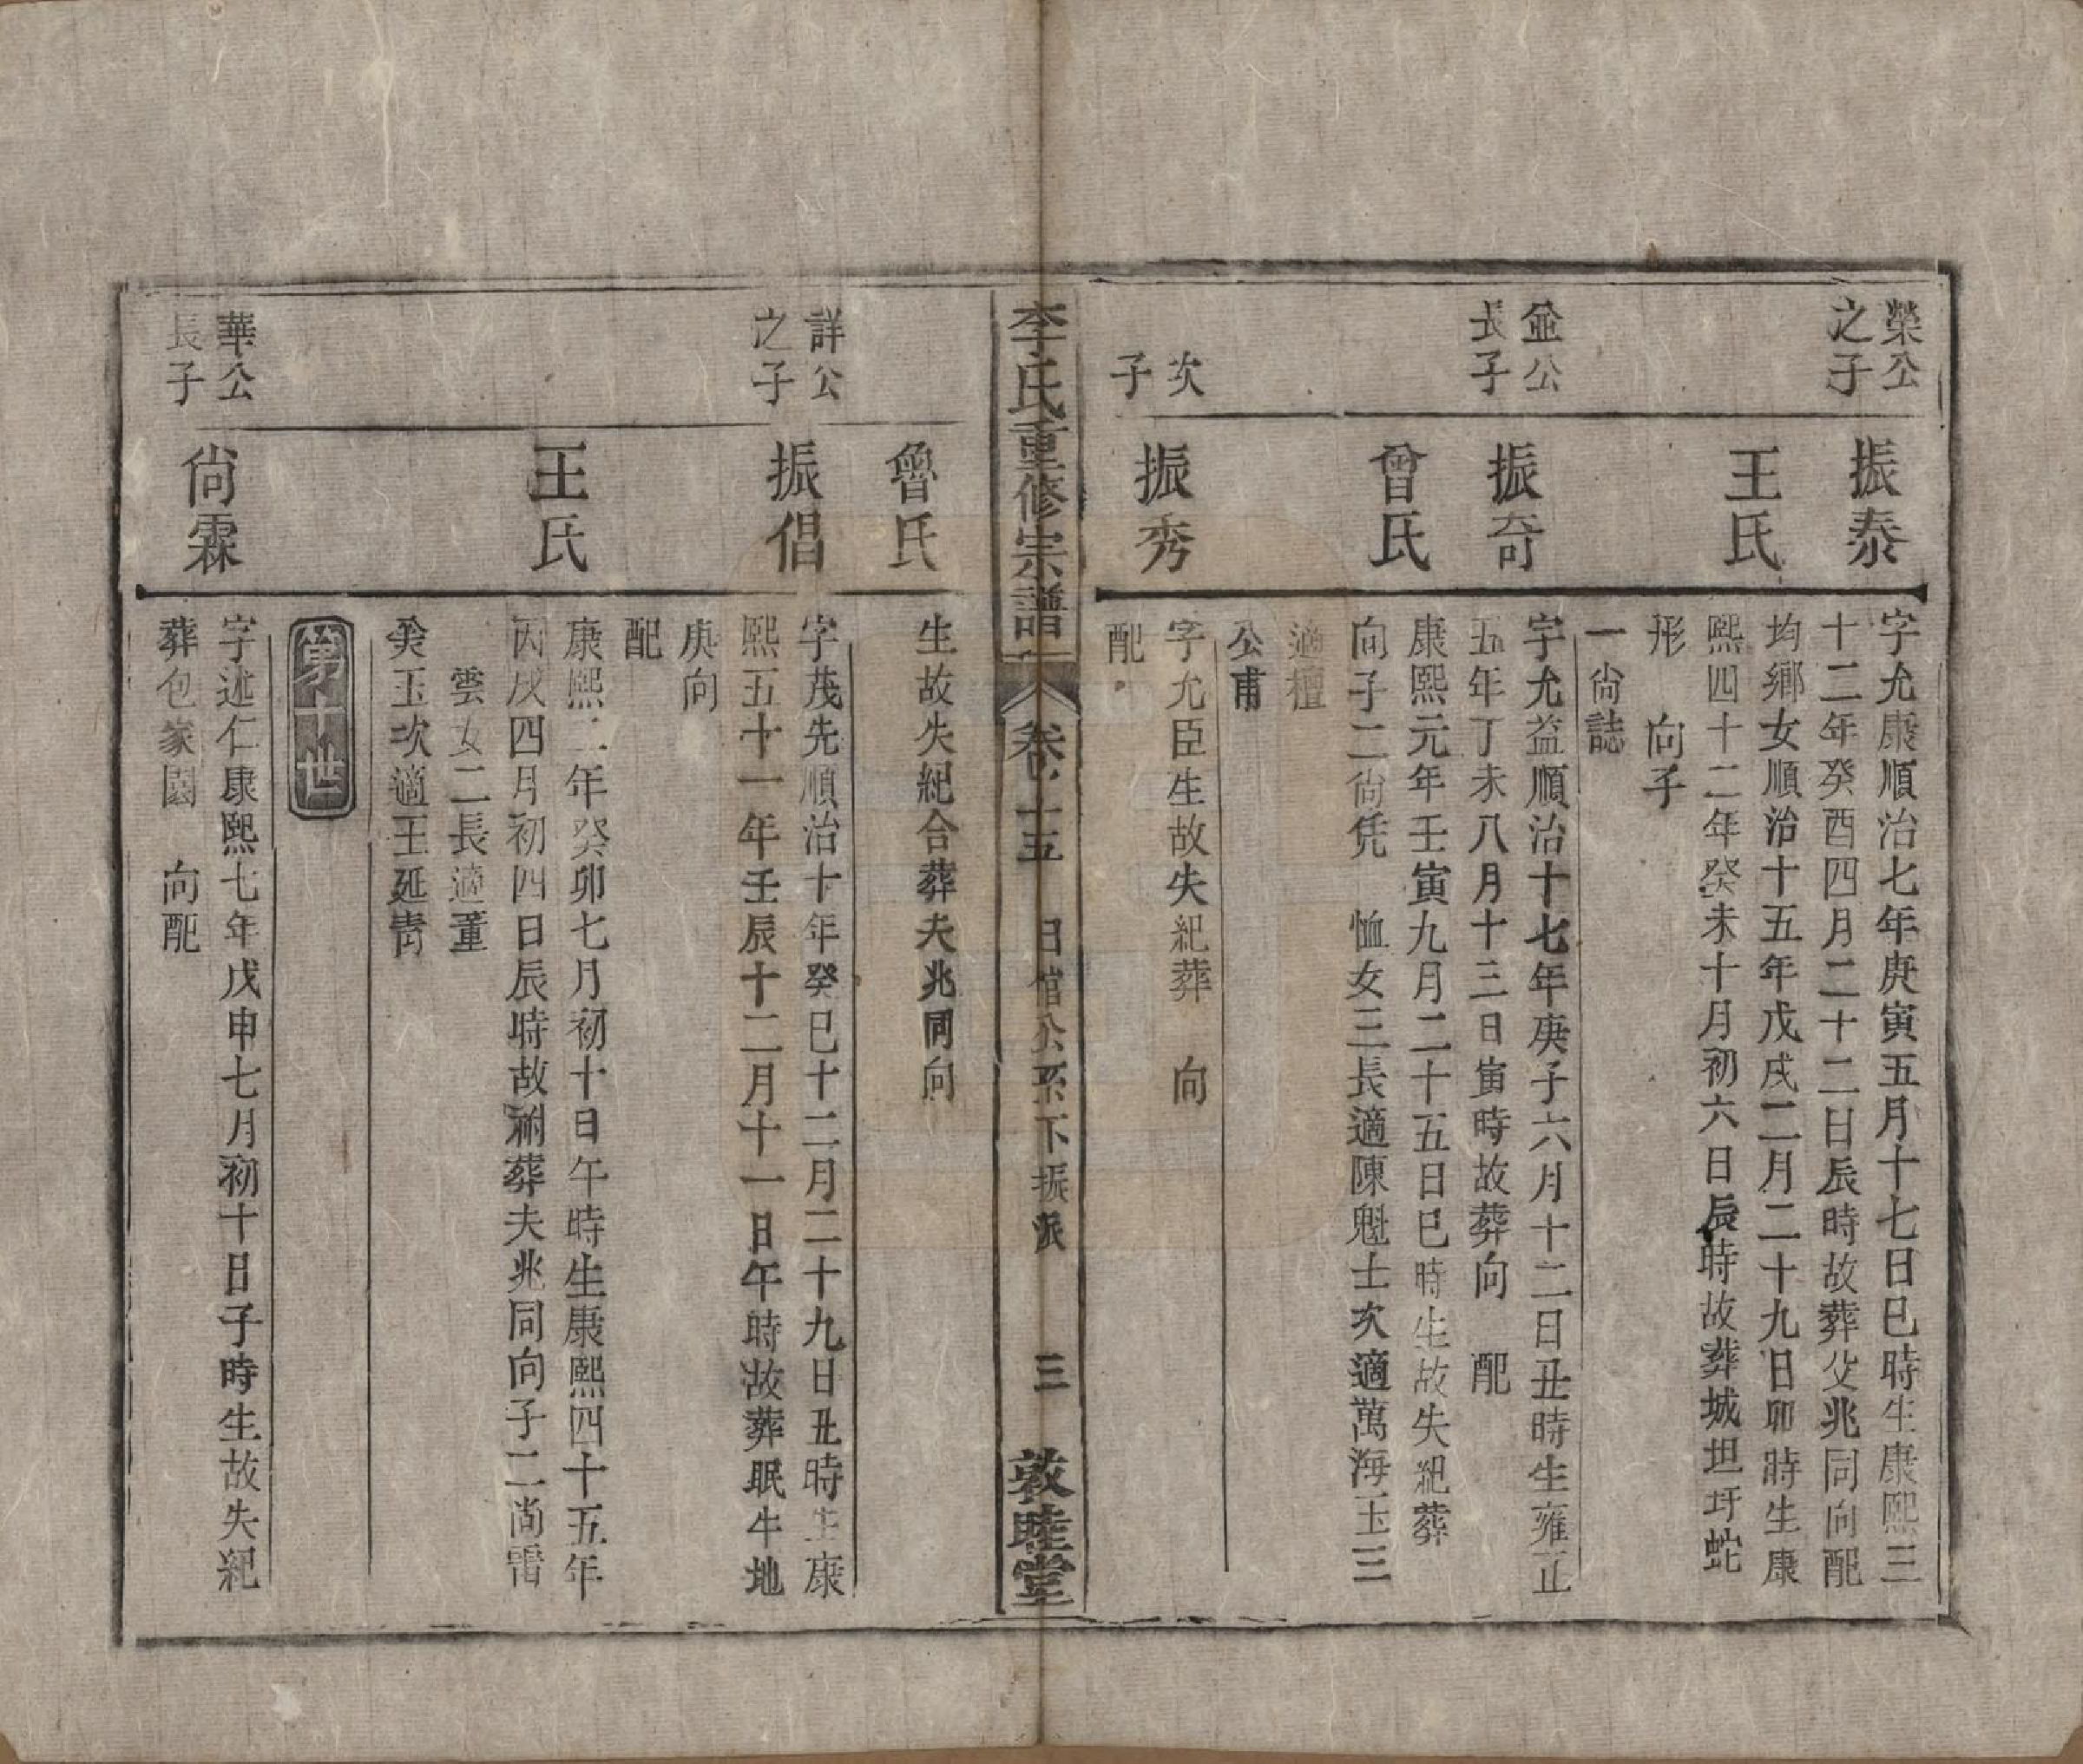 榮公
之子
振泰
字允康順治七年庚寅五月十七日巳時生康熙三
十二年癸酉四月二十二日辰時故葬父兆同向配
王氏
均鄉女順治十五年戊戌二月二十九日卯時生康
熙四十二年癸未十月初六日辰時故葬城坦圩蛇
形　向子
一尙誌
益公
長子
振奇
字允益順治十七年庚子六月十二日丑時生雍正
五年丁未八月十三日寅時故葬向　配
曾氏
康熙元年壬寅九月二十五日巳時生故失紀葬
向子二尙凭　恤女三長適陳魁士次適萬海玉三
適檀
公甫
次
子
振秀
字允臣生故失紀葬　向
配
李氏重修宗譜
卷十五　日官公系下振派　三　敦睦堂
魯氏
生故失紀合葬夫兆同向
詳公
之子
振倡
字茂先順治十年癸巳十二月二十九日丑時生康
熙五十一年壬辰十二月十一日午時故葬眠牛地
庚向
配
王氏
康熙二年癸卯七月初十日午時生康熙四十五年
丙戌四月初四日辰時故祔葬夫兆同向子二尙雷
雲女二長適董
癸玉次適王延靑
第十世
華公
長子
尙霖
字述仁康熙七年戊申七月初十日子時生故失紀
葬包家園　向配